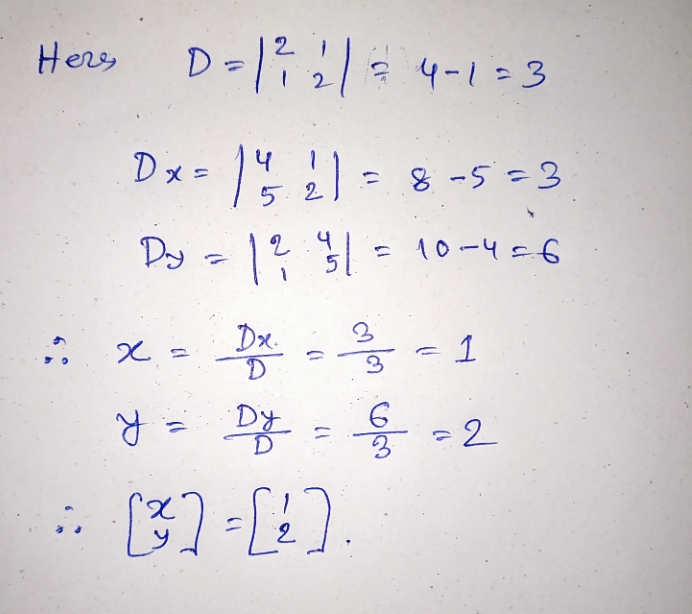 Here D = |2 1 1 2| = 4 - 1 = 3
Dx = |4 1 5 2| = 8 - 5 = 3
Dy = |2 4 1 5| = 10 - 4 = 6
∴ x = Dx/D = 3/3 = 1
y = Dy/D = 6/3 = 2
∴ [x y] = [1 2].